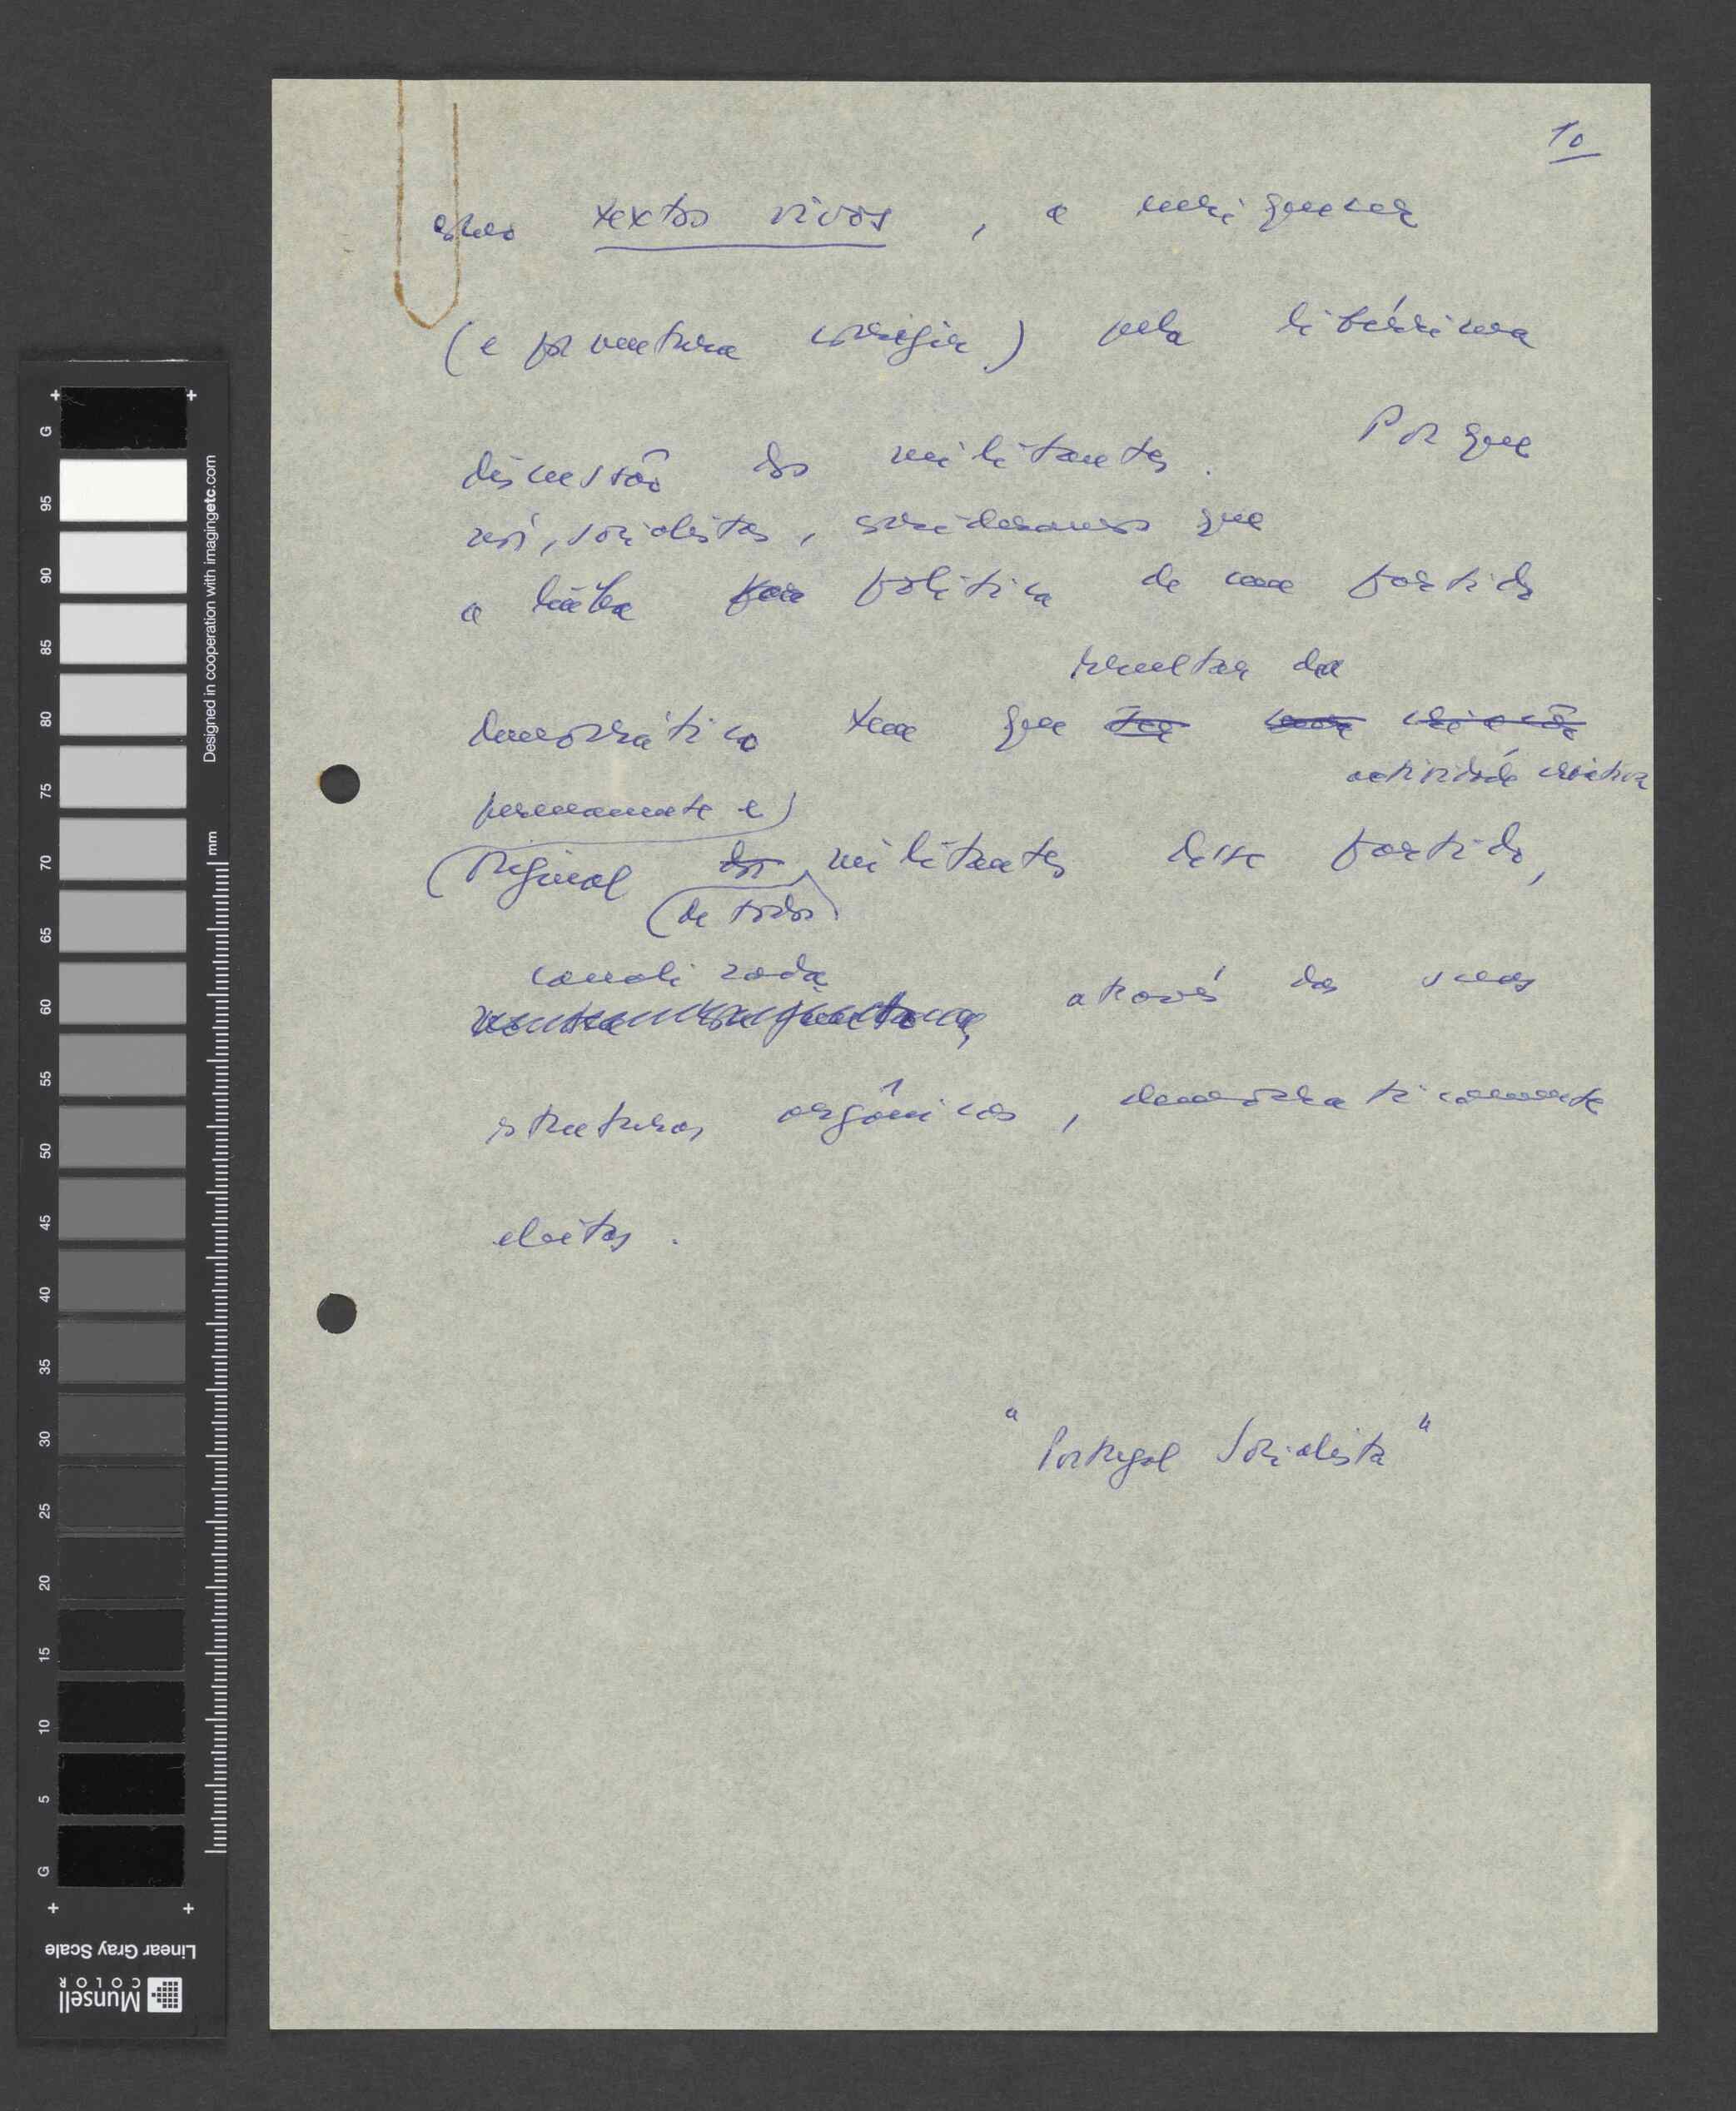 10
textos vivos, a enriquecer
(e porventura corrigir) pela libérrima
discussão dos militantes. Porque
nós, socialistas, consideramos que
a linha política de um partido
resultar da
democrático tem que ter uma criação
actividade criativa
permanente e
original dos militantes desse partido,
de todos
canalizada
através das suas
estruturas orgânicas, democraticamente
eleitas.
"Portugal Socialista"
G
95
90
85
80
75
70
65
60
55
50
45
40
35
30
25
20
15
10
5
G
mm
Designed in cooperation with imagingetc.com
Linear Gray Scale
Munsell
COLOR